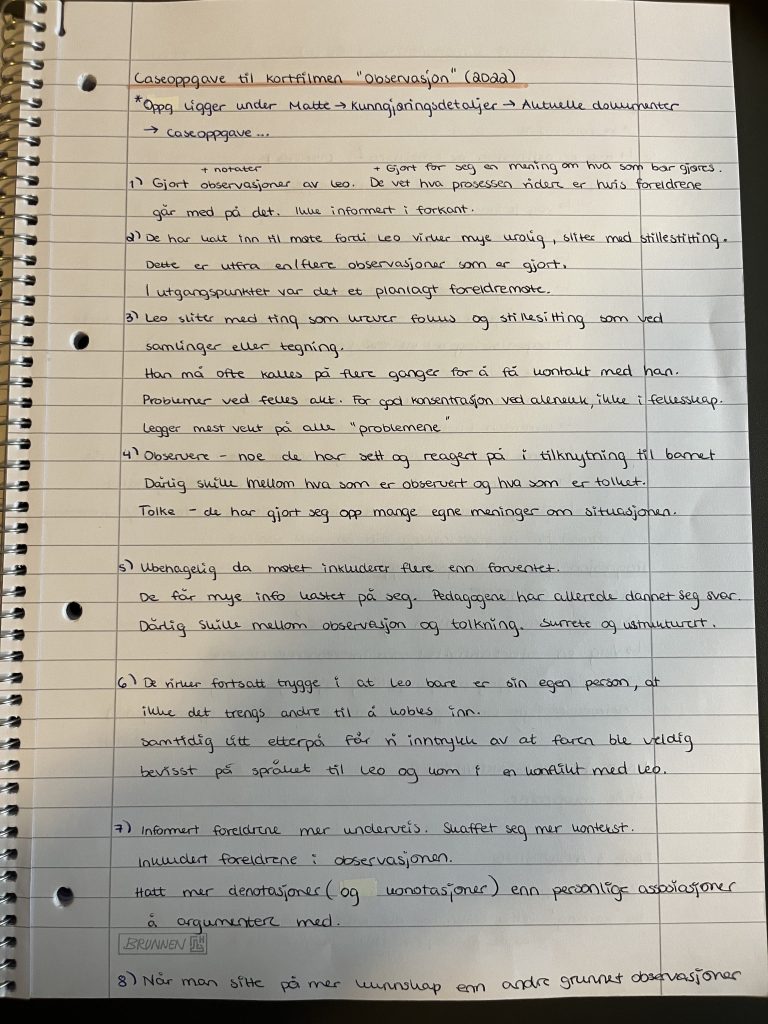 Caseoppgave til kortfilmen "Observasjon" (2022)
*Oppg ligger under Matte → Kunngjøringsdetaljer → Aktuelle dokumenter
→ Caseoppgave...
+ notater + Gjort for seg en mening om hva som bør gjøres.
1) Gjort observasjoner av Leo. De vet hva prosessen videre er hvis foreldrene
går med på det. Ikke informert i forkant.
2) De har kalt inn til møte fordi Leo virker mye urolig, sliter med stillesitting.
Dette er utfra en/flere observasjoner som er gjort.
I utgangspunktet var det et planlagt foreldremøte.
3) Leo sliter med ting som krever fokus og stillesitting som ved
samlinger eller tegning.
Han må ofte kalles på flere ganger for å få kontakt med han.
Problemer ved felles akt. For god konsentrasjon ved alenelek, ikke i fellesskap.
Legger mest vekt på alle "problemene"
4) Observere - noe de har sett og reagert på i tilknytning til barnet
Dårlig skille mellom hva som er observert og hva som er tolket.
Tolke - de har gjort seg opp mange egne meninger om situasjonen.
5) Ubehagelig da møtet inkluderer flere enn forventet.
De får mye info kastet på seg. Pedagogene har allerede dannet seg svar.
Dårlig skille mellom observasjon og tolkning. Surrete og ustrukturert.
6) De virker fortsatt trygge i at Leo bare er sin egen person, at
ikke det trengs andre til å kobles inn.
Samtidig litt etterpå får vi inntrykk av at faren ble veldig
bevisst på språket til Leo og kom i en konflikt med Leo.
7) Informert foreldrene mer underveis. Skaffet seg mer kontekst.
Inkludert foreldrene i observasjonen.
Hatt mer denotasjoner (og konotasjoner) enn personlige assosiasjoner
å argumentere med.
BRUNNEN
8) Når man sitte på mer kunnskap enn andre grunnet observasjoner